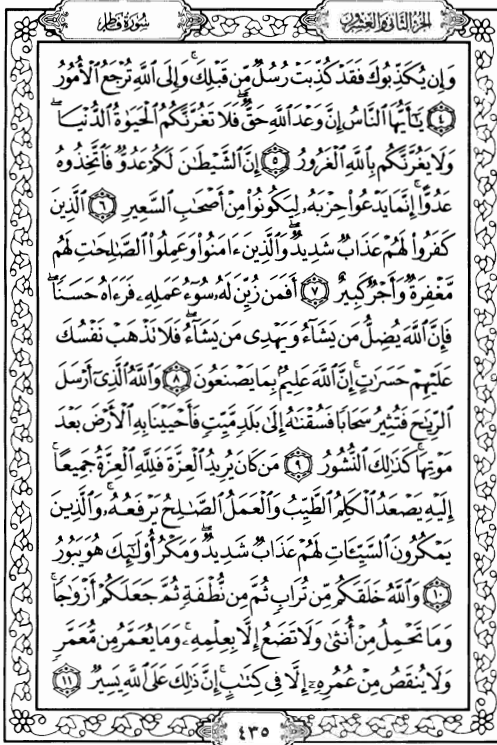 سُورَةُ فَاطِرٍ
الجُزْءُ الثَّانِي وَالعِشْرُونَ
وَإِن يُكَذِّبُوكَ فَقَدْ كُذِّبَتْ رُسُلٌ مِّن قَبْلِكَ ۚ وَإِلَى ٱللَّهِ تُرْجَعُ ٱلْأُمُورُ
﴿٤﴾ يَٰٓأَيُّهَا ٱلنَّاسُ إِنَّ وَعْدَ ٱللَّهِ حَقٌّ ۖ فَلَا تَغُرَّنَّكُمُ ٱلْحَيَوٰةُ ٱلدُّنْيَا ۖ
وَلَا يَغُرَّنَّكُم بِٱللَّهِ ٱلْغَرُورُ ﴿٥﴾ إِنَّ ٱلشَّيْطَٰنَ لَكُمْ عَدُوٌّ فَٱتَّخِذُوهُ
عَدُوًّا ۚ إِنَّمَا يَدْعُوا۟ حِزْبَهُۥ لِيَكُونُوا۟ مِنْ أَصْحَٰبِ ٱلسَّعِيرِ ﴿٦﴾ ٱلَّذِينَ
كَفَرُوا۟ لَهُمْ عَذَابٌ شَدِيدٌ ۖ وَٱلَّذِينَ ءَامَنُوا۟ وَعَمِلُوا۟ ٱلصَّٰلِحَٰتِ لَهُم
مَّغْفِرَةٌ وَأَجْرٌ كَبِيرٌ ﴿٧﴾ أَفَمَن زُيِّنَ لَهُۥ سُوٓءُ عَمَلِهِۦ فَرَءَاهُ حَسَنًا ۖ
فَإِنَّ ٱللَّهَ يُضِلُّ مَن يَشَآءُ وَيَهْدِى مَن يَشَآءُ ۖ فَلَا تَذْهَبْ نَفْسُكَ
عَلَيْهِمْ حَسَرَٰتٍ ۚ إِنَّ ٱللَّهَ عَلِيمٌۢ بِمَا يَصْنَعُونَ ﴿٨﴾ وَٱللَّهُ ٱلَّذِىٓ أَرْسَلَ
ٱلرِّيَٰحَ فَتُثِيرُ سَحَابًا فَسُقْنَٰهُ إِلَىٰ بَلَدٍ مَّيِّتٍ فَأَحْيَيْنَا بِهِ ٱلْأَرْضَ بَعْدَ
مَوْتِهَا ۚ كَذَٰلِكَ ٱلنُّشُورُ ﴿٩﴾ مَن كَانَ يُرِيدُ ٱلْعِزَّةَ فَلِلَّهِ ٱلْعِزَّةُ جَمِيعًا ۚ
إِلَيْهِ يَصْعَدُ ٱلْكَلِمُ ٱلطَّيِّبُ وَٱلْعَمَلُ ٱلصَّٰلِحُ يَرْفَعُهُۥ ۚ وَٱلَّذِينَ
يَمْكُرُونَ ٱلسَّيِّـَٔاتِ لَهُمْ عَذَابٌ شَدِيدٌ ۖ وَمَكْرُ أُو۟لَٰٓئِكَ هُوَ يَبُورُ
﴿١٠﴾ وَٱللَّهُ خَلَقَكُم مِّن تُرَابٍ ثُمَّ مِن نُّطْفَةٍ ثُمَّ جَعَلَكُمْ أَزْوَٰجًا ۚ
وَمَا تَحْمِلُ مِنْ أُنثَىٰ وَلَا تَضَعُ إِلَّا بِعِلْمِهِۦ ۚ وَمَا يُعَمَّرُ مِن مُّعَمَّرٍ
وَلَا يُنقَصُ مِنْ عُمُرِهِۦٓ إِلَّا فِى كِتَٰبٍ ۚ إِنَّ ذَٰلِكَ عَلَى ٱللَّهِ يَسِيرٌ ﴿١١﴾
٤٣٥